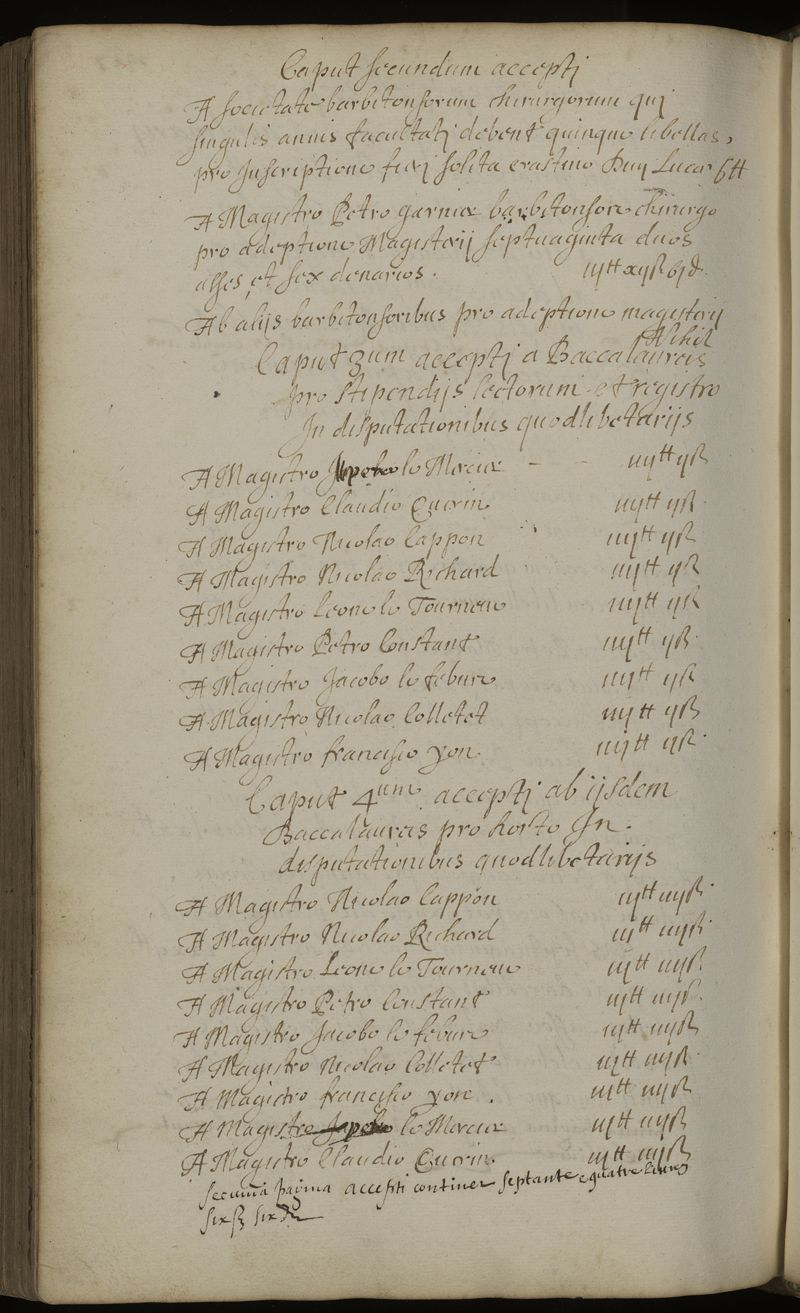 Caput secundum accepti
A societate barbitonsorum chirurgorum qui
singulis annis facultati debent quinque libellas,
pro Inscriptione fieri solita crastino Divi Lucae 5tt
A Magistro Petro garnier barbitonsore chirurgo
pro adeptione Magisterij septuaginta duos
asses, et sex denarios. iijtt xijß vjd.
Ab alijs barbitonsoribus pro adeptione magisterij
Nihil
Caput 3um accepti a Baccalaureis
pro stipendijs lectorum et registro
In disputationibus quodlibetarijs
A Magistro le Mercier - - iiijtt ijß
A Magistro Claudio Guerin iiijtt ijß
A Magistro Nicolao Cappon iiijtt ijß
A Magistro Nicolao Richard iiijtt ijß
A Magistro Leone le Tourneur iiijtt ijß
A Magistro Petro Constant iiijtt ijß
A Magistro Jacobo le febure iiijtt ijß
A Magistro Nicolao Colletet iiijtt ijß
A Magistro francisco yon iiijtt ijß
Caput 4um accepti ab ijsdem
Baccalaureis pro horto In
disputationibus quodlibetarijs
A Magistro Nicolao Cappon iijtt iiijß
A Magistro Nicolao Richard iijtt iiijß
A Magistro Leone le Tourneur iijtt iiijß
A Magistro Petro Constant iijtt iiijß
A Magistro Jacobo le febure iijtt iiijß
A Magistro Nicolao Colletet iijtt iiijß
A Magistro francisco yon. iijtt iiijß
A Magistro le Mercier iijtt iiijß
A Magistro Claudio Guerin. iijtt iiijß
secunda pagina accepti continet septante quatre livres
six ß six d